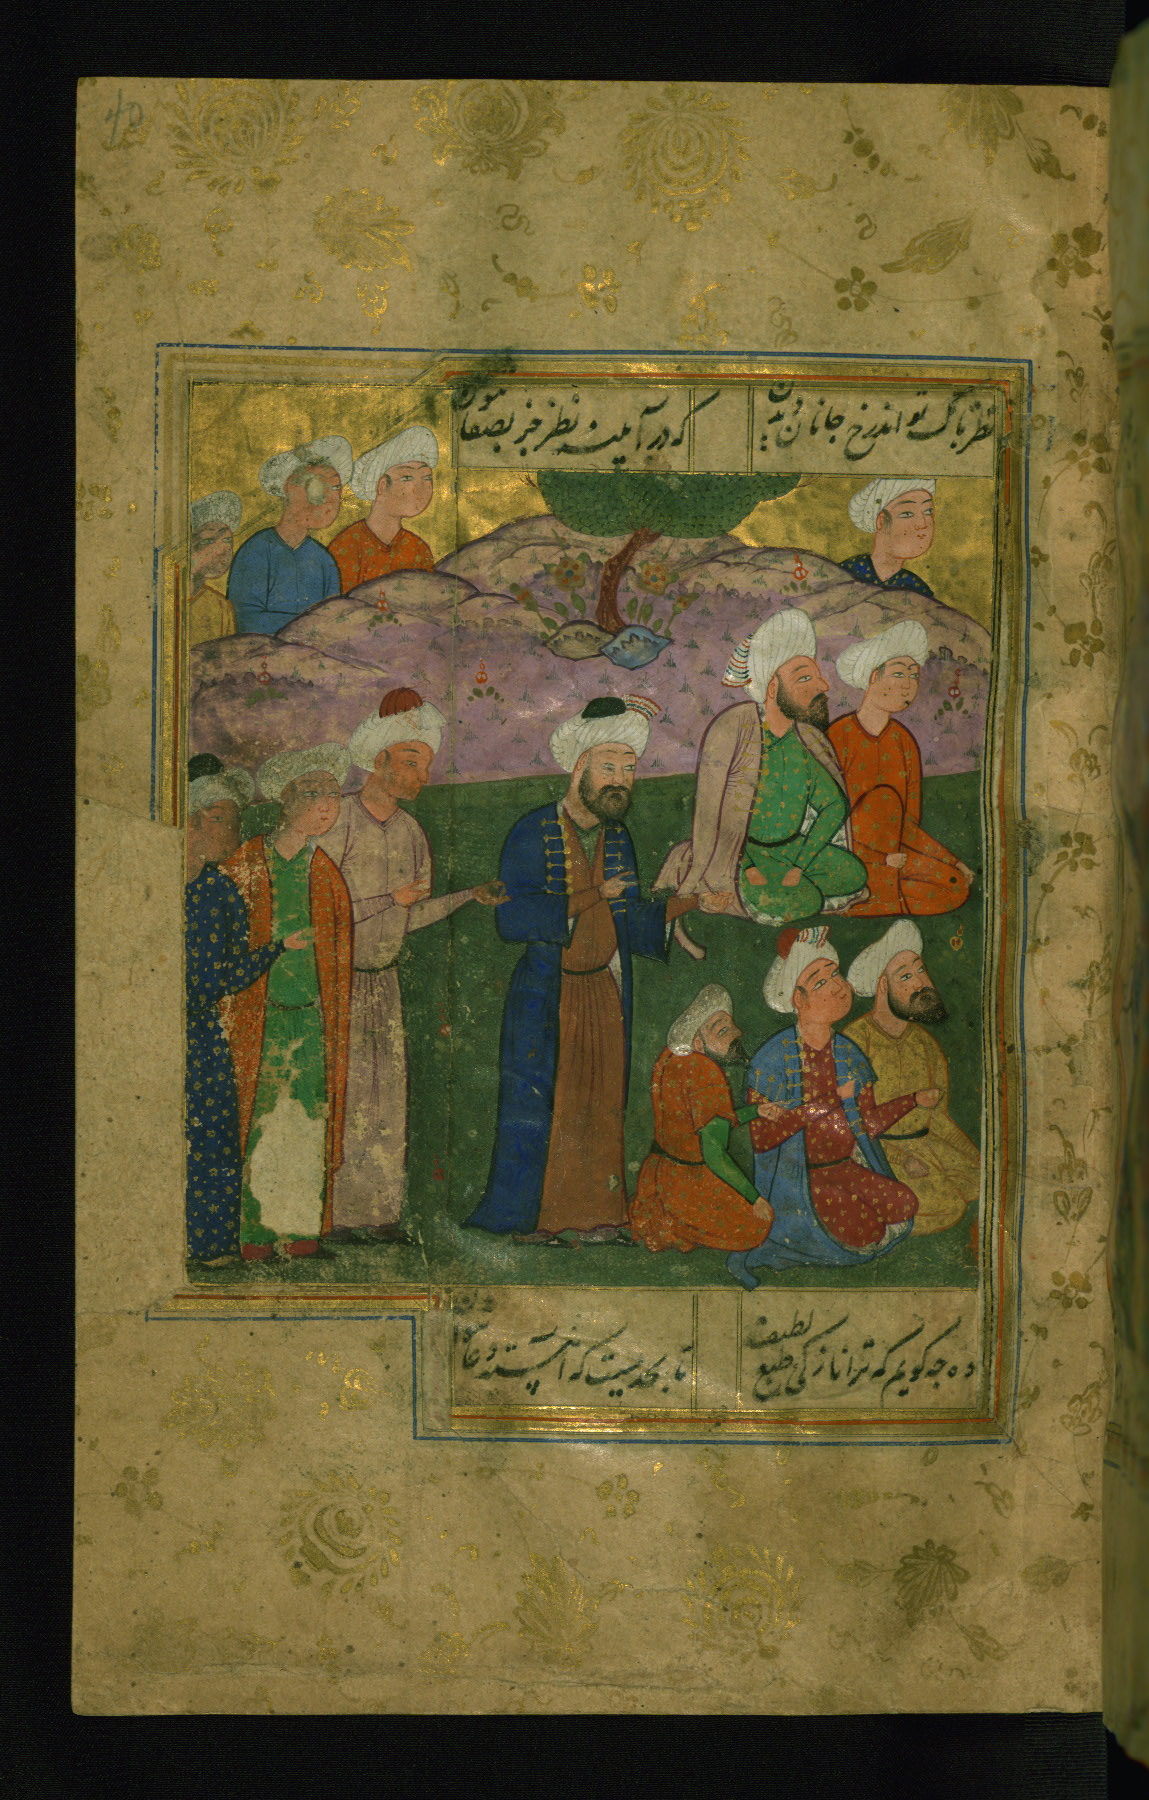 40
نظر پاک تواند رخ جانان دیدن
که در آیینه نظر جز بصفا نتوان
چه گویم که ترا نازکی طبع لطیف
تا بحدیست که آهسته دعا نتوان